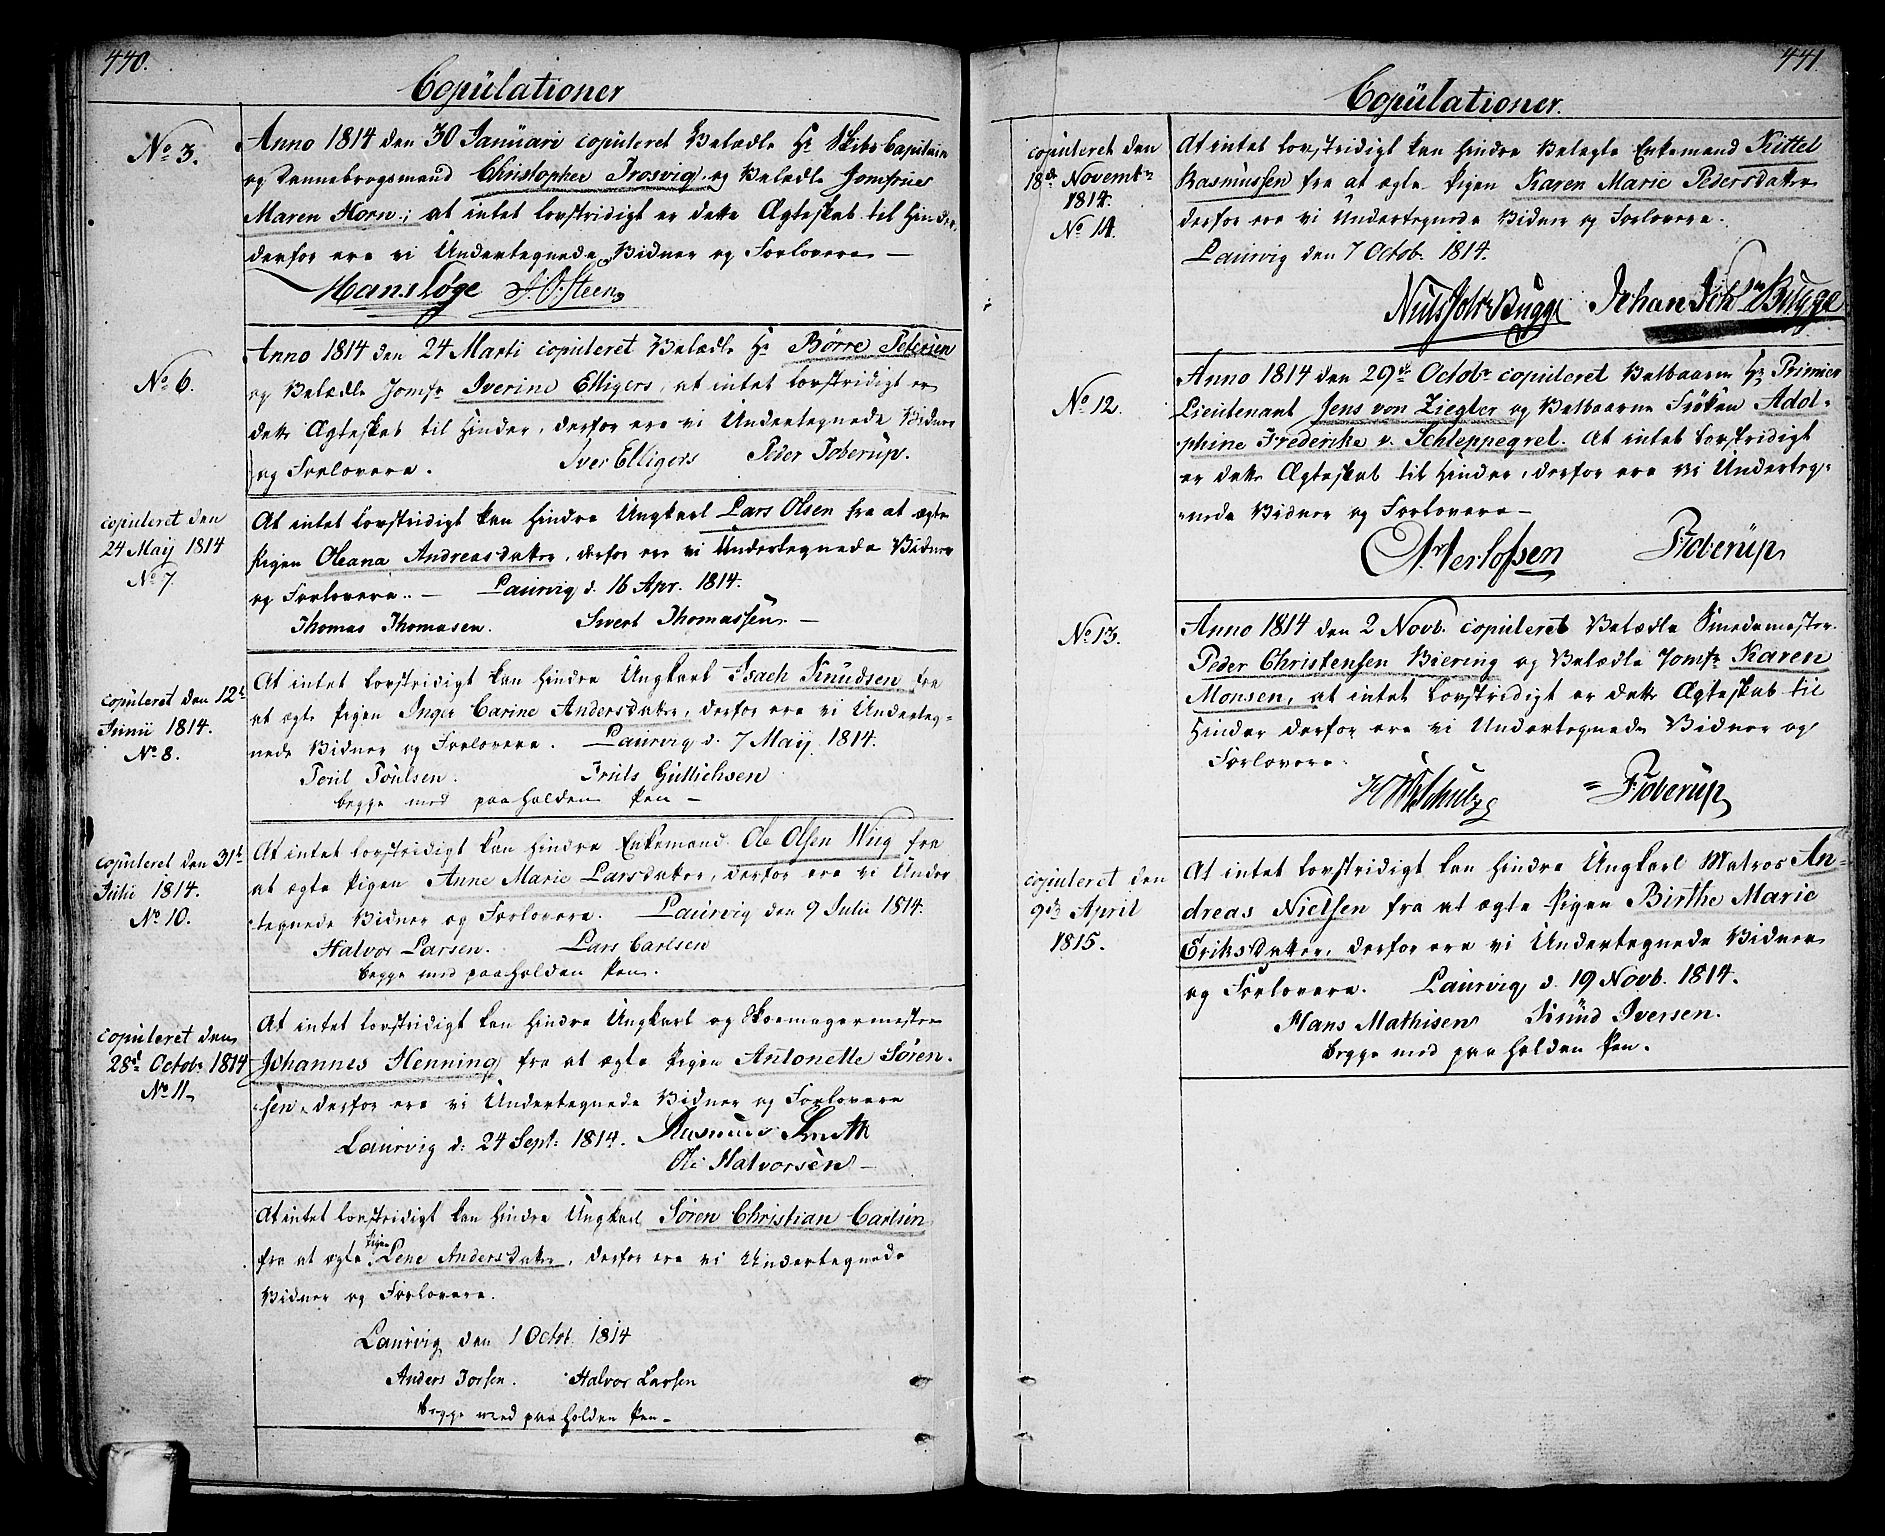 440.
Copülationer
No 3.
Anno 1814 den 30 Januari copuleret Velædle Hr Skibs Capitain
og Dannebrogsmand Christopher Trosvig, og Velædle Jomfrue
Maren Horn; at intet lovstridigt er dette Ægteskab til Hinder,
derfor ere vi Undertegnede Vidner og Forlovere —
Hans Løge
Steen
No 6.
Anno 1814 den 24 Marti copuleret Velædle Hr Børre Petersen
og Velædle Jomfr Iverine Elligers, at intet lovstridigt er
dette Ægteskab til Hinder, derfor ere vi Undertegnede Vidner
og Forlovere.
Iver Elligers
Peder Toberup.
copuleret den
24 Maij 1814
No 7.
At intet lovstridigt kan hindre Ungkarl Lars Olsen fra at ægte
Pigen Oleana Andreasdatter, derfor ere vi Undertegnede Vidner
og Forlovere. — Laurvig d. 16 Apr. 1814.
Thomas Thomasen.
Sivert Thomassen. —
copuleret den 12te
Junii 1814.
No 8.
At intet lovstridigt kan hindre Ungkarl Isach Knudsen fra
at ægte Pigen Inger Carine Andersdatter, derfor ere vi Underteg-
nede Vidner og Forlovere. Laurvig d. 7 Maij 1814.
Poul Poulsen.
Truls Gullichsen
begge med paaholden Pen —
copuleret den 31te
Julii 1814.
No 10.
At intet lovstridigt kan hindre Enkemand Ole Olsen Wiig fra
at ægte Pigen Anne Marie Larsdatter, derfor ere vi Under
tegnede Vidner og Forlovere. Laurvig den 9 Julii 1814.
Halvor Larsen.
Lars Carlsen
begge med paaholden Pen.
copuleret den
28d Octobr 1814
No 11
At intet lovstridigt kan hindre Ungkarl og Skoemagermester
Johannes Henning fra at ægte Pigen Antonette Sören-
sen, derfor ere vi Undertegnede Vidner og Forlovere
Laurvig d: 24 Sept: 1814. Rasmus Smith
Ole Halvorsen —
At intet lovstridigt kan hindre Ungkarl Søren Christian Carlsen
fra at ægte Pigen Lene Andersdatter, derfor ere vi Undertegnede
Vidner og Forlovere.
Laurvig den 1 Octob. 1814
Anders Torsen.
Halvor Larsen
begge med paaholden Pen —
441.
Copülationer.
copuleret den
18de Novembr
1814.
No 14.
At intet lovstridigt kan hindre Velagte Enkemand Kittel
Rasmussen fra at ægte Pigen Karen Marie Pedersdatter
derfor ere vi Undertegnede Vidner og Forlovere.
Laurvig den 7 Octob. 1814.
Niels Johs Bugge
Johan Bugge
No 12.
Anno 1814 den 29de Octobr copuleret Velbaarne Hr Primier
Lieutenant Jens von Ziegler og Velbaarne Frøken Adol-
phine Frederike v. Schleppegrel. At intet lovstridigt
er dette Ægteskab til Hinder, derfor ere vi Underteg-
nede Vidner og Forlovere —
Oerlofsen
P Toberup
No 13.
Anno 1814 den 2 Novb. copuleret Velædle Smedemester
Peder Christensen Biering og Velædle Jomfr Karen
Monsen, at intet lovstridigt er dette Ægteskab til
Hinder derfor ere vi Undertegnede Vidner og
Forlovere.
Schulz
P Toberup
copuleret den
9de April
1815.
At intet lovstridigt kan hindre Ungkarl Matros An-
dreas Nielsen fra at ægte Pigen Birthe Marie
Eriksdatter, derfor ere vi Undertegnede Vidner
og Forlovere. Laurvig d. 19 Novb. 1814.
Hans Mathisen
Knud Iversen.
begge med paaholden Pen.